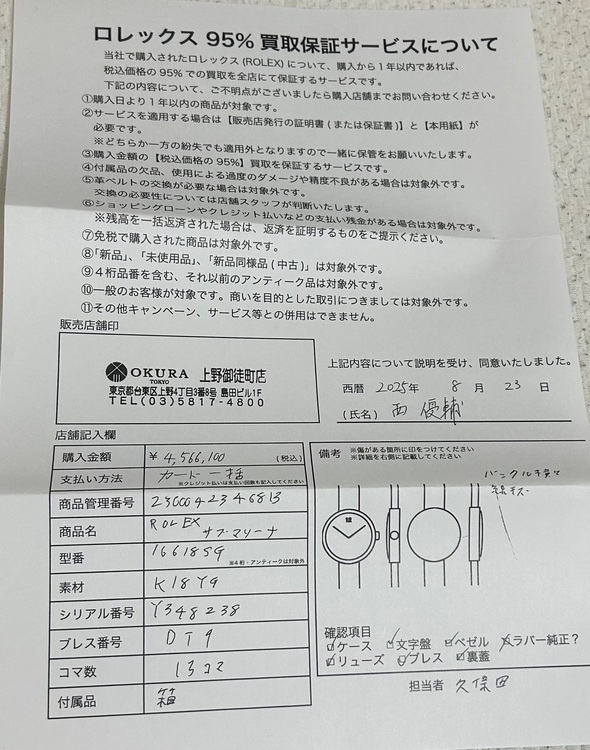 ロレックス 95% 買取保証サービスについて
当社で購入されたロレックス (ROLEX) について、購入から1年以内であれば、
税込価格の95%での買取を全店にて保証するサービスです。
下記の内容について、ご不明点がございましたら購入店舗までお問い合わせください。
①購入日より1年以内の商品が対象です。
②サービスを適用する場合は【販売店発行の証明書(または保証書)】と【本用紙】が
必要です。
※どちらか一方の紛失でも適用外となりますので一緒に保管をお願いいたします。
③購入金額の【税込価格の95%】買取を保証するサービスです。
④付属品の欠品、使用による過度のダメージや精度不良がある場合は対象外です。
⑤革ベルトの交換が必要な場合は対象外です。
交換の必要性については店舗スタッフが判断いたします。
⑥ショッピングローンやクレジット払いなどの支払い残金がある場合は対象外です。
※残高を一括返済された場合は、返済を証明するものをご提示ください。
⑦免税で購入された商品は対象外です。
⑧「新品」、「未使用品」、「新品同様品(中古)」は対象外です。
⑨4桁品番を含む、それ以前のアンティーク品は対象外です。
⑩一般のお客様が対象です。商いを目的とした取引につきましては対象外です。
⑪その他キャンペーン、サービス等との併用はできません。
販売店舗印
OKURA TOKYO 上野御徒町店
東京都台東区上野4丁目3番8号 島田ビル1F
TEL(03)5817-4800
上記内容について説明を受け、同意いたしました。
西暦 2025年 8月 23日
(氏名) 西 優輔
店舗記入欄
購入金額 ¥ 4,566,100 (税込)
支払い方法 カード一括
※クレジット払いは支払い回数も記入してください
商品管理番号
商品名 ROLEX サブマリーナ
型番 166185G
※4桁・アンティークは対象外
素材 K18YG
シリアル番号 Y348238
ブレス番号 DT9
コマ数 13コマ
付属品 箱
備考 ※傷がある箇所に印をつけてください
※詳細を右側に記載してください
バックル
線キズ
確認項目
ケース 文字盤 ベゼル ラバー純正?
リューズ ブレス 裏蓋
担当者 久保田